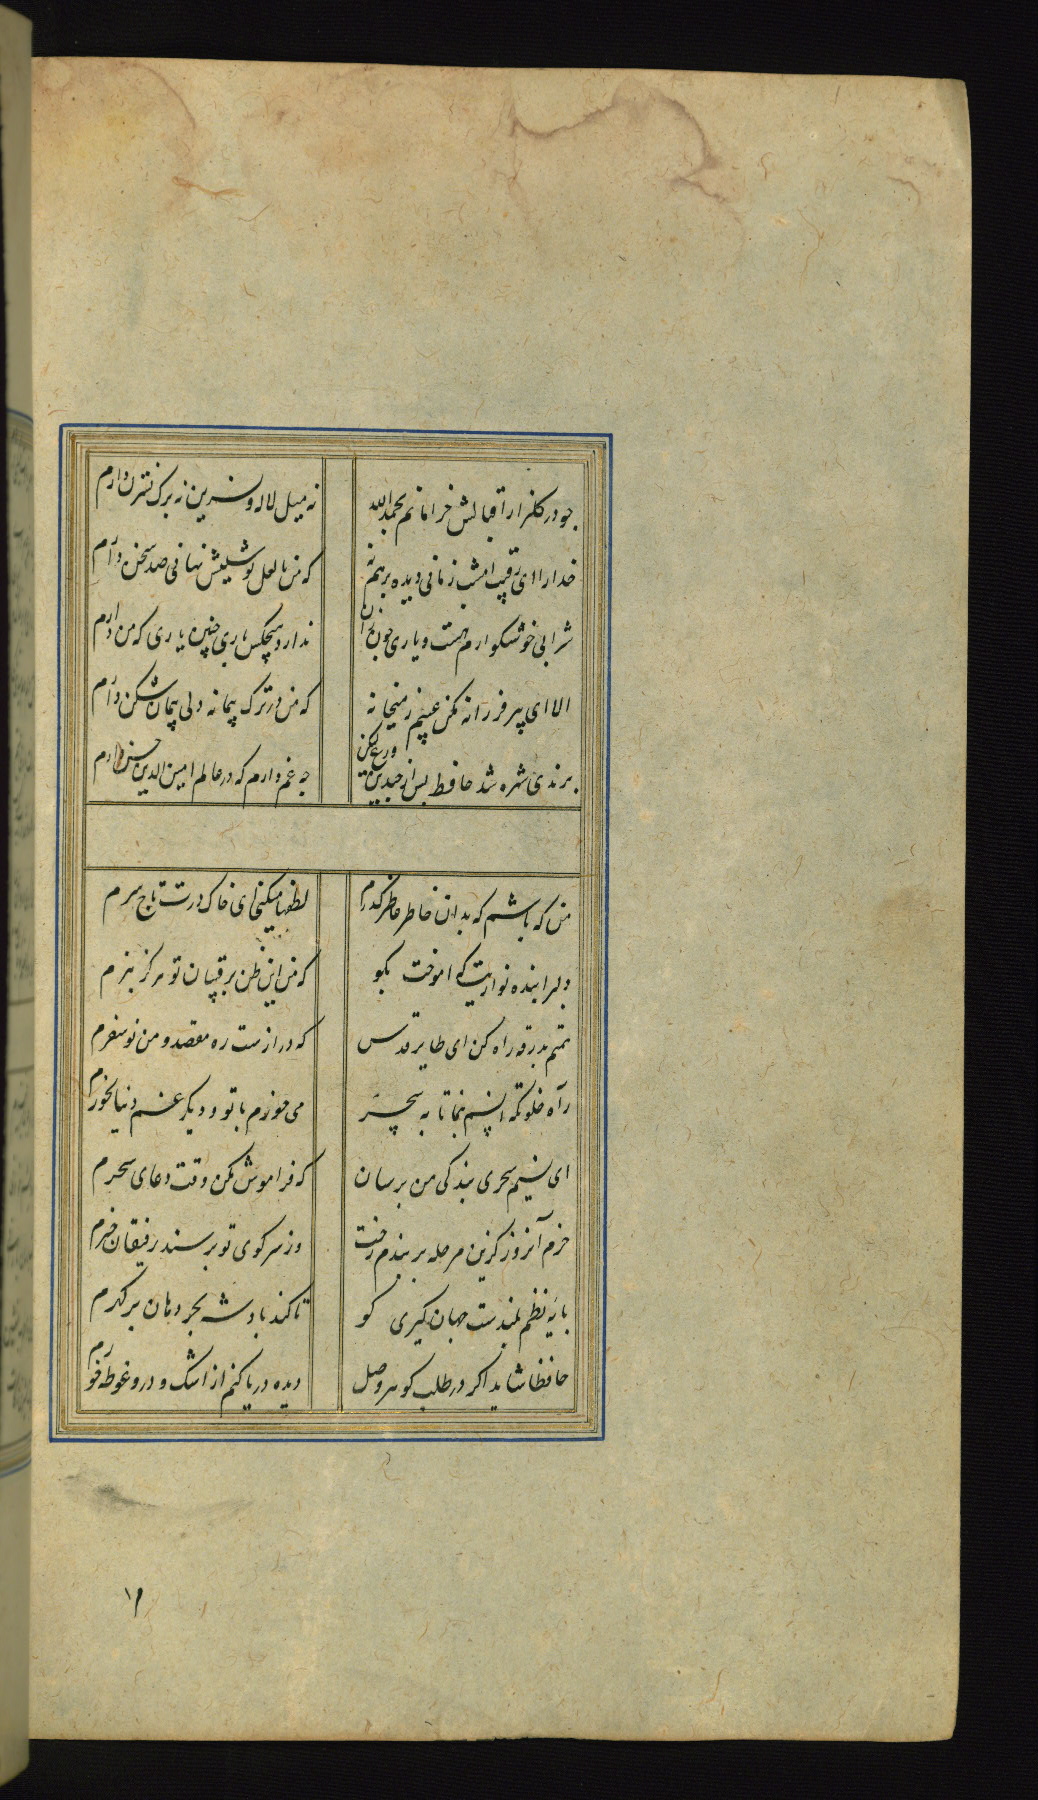 چو در گلزار اقبالش خرامانم بحمد الله
نه میل لاله و نسرین نه برگ نسترن دارم
خدا را ای رقیب امشب زمانی دیده بر هم نه
که من با لعل نوشینش نهانی صد سخن دارم
شرابی خوشگوارم هست و یاری چون
ندارد هیچکس باری چنین یاری که من دارم
الا ای پیر فرزانه مکن عیبم ز میخانه
که من در ترک پیمانه دلی پیمان شکن دارم
برندی شهره شد حافظ پس از چندین ورع لیکن
چه غم دارم که در عالم امین الدین حسن دارم
من که باشم که بدان خاطر عاطر گذرم
لطفها میکنی ای خاک درت تاج سرم
دلبرا بنده نوازیت که اموخت بگو
که من این ظن برقیبان تو هرگز نبرم
همتم بدرقه راه کن ای طایر قدس
که درازست ره مقصد و من نوسفرم
راه خلوتگه بنما تا به سحر
می خورم با تو و دیگر غم دنیا نخورم
ای نسیم سحری بندگی من برسان
که فراموش مکن وقت دعای سحرم
خرم آنروز کزین مرحله بربندم رخت
وز سر کوی تو پرسند رفیقان خبرم
پایه نظم بلندست جهان گیری کو
تا کند پادشه بحر دهان پر گهرم
حافظا شاید اگر در طلب گوهر وصل
دیده دریا کنم از اشک و درو غوطه خورم